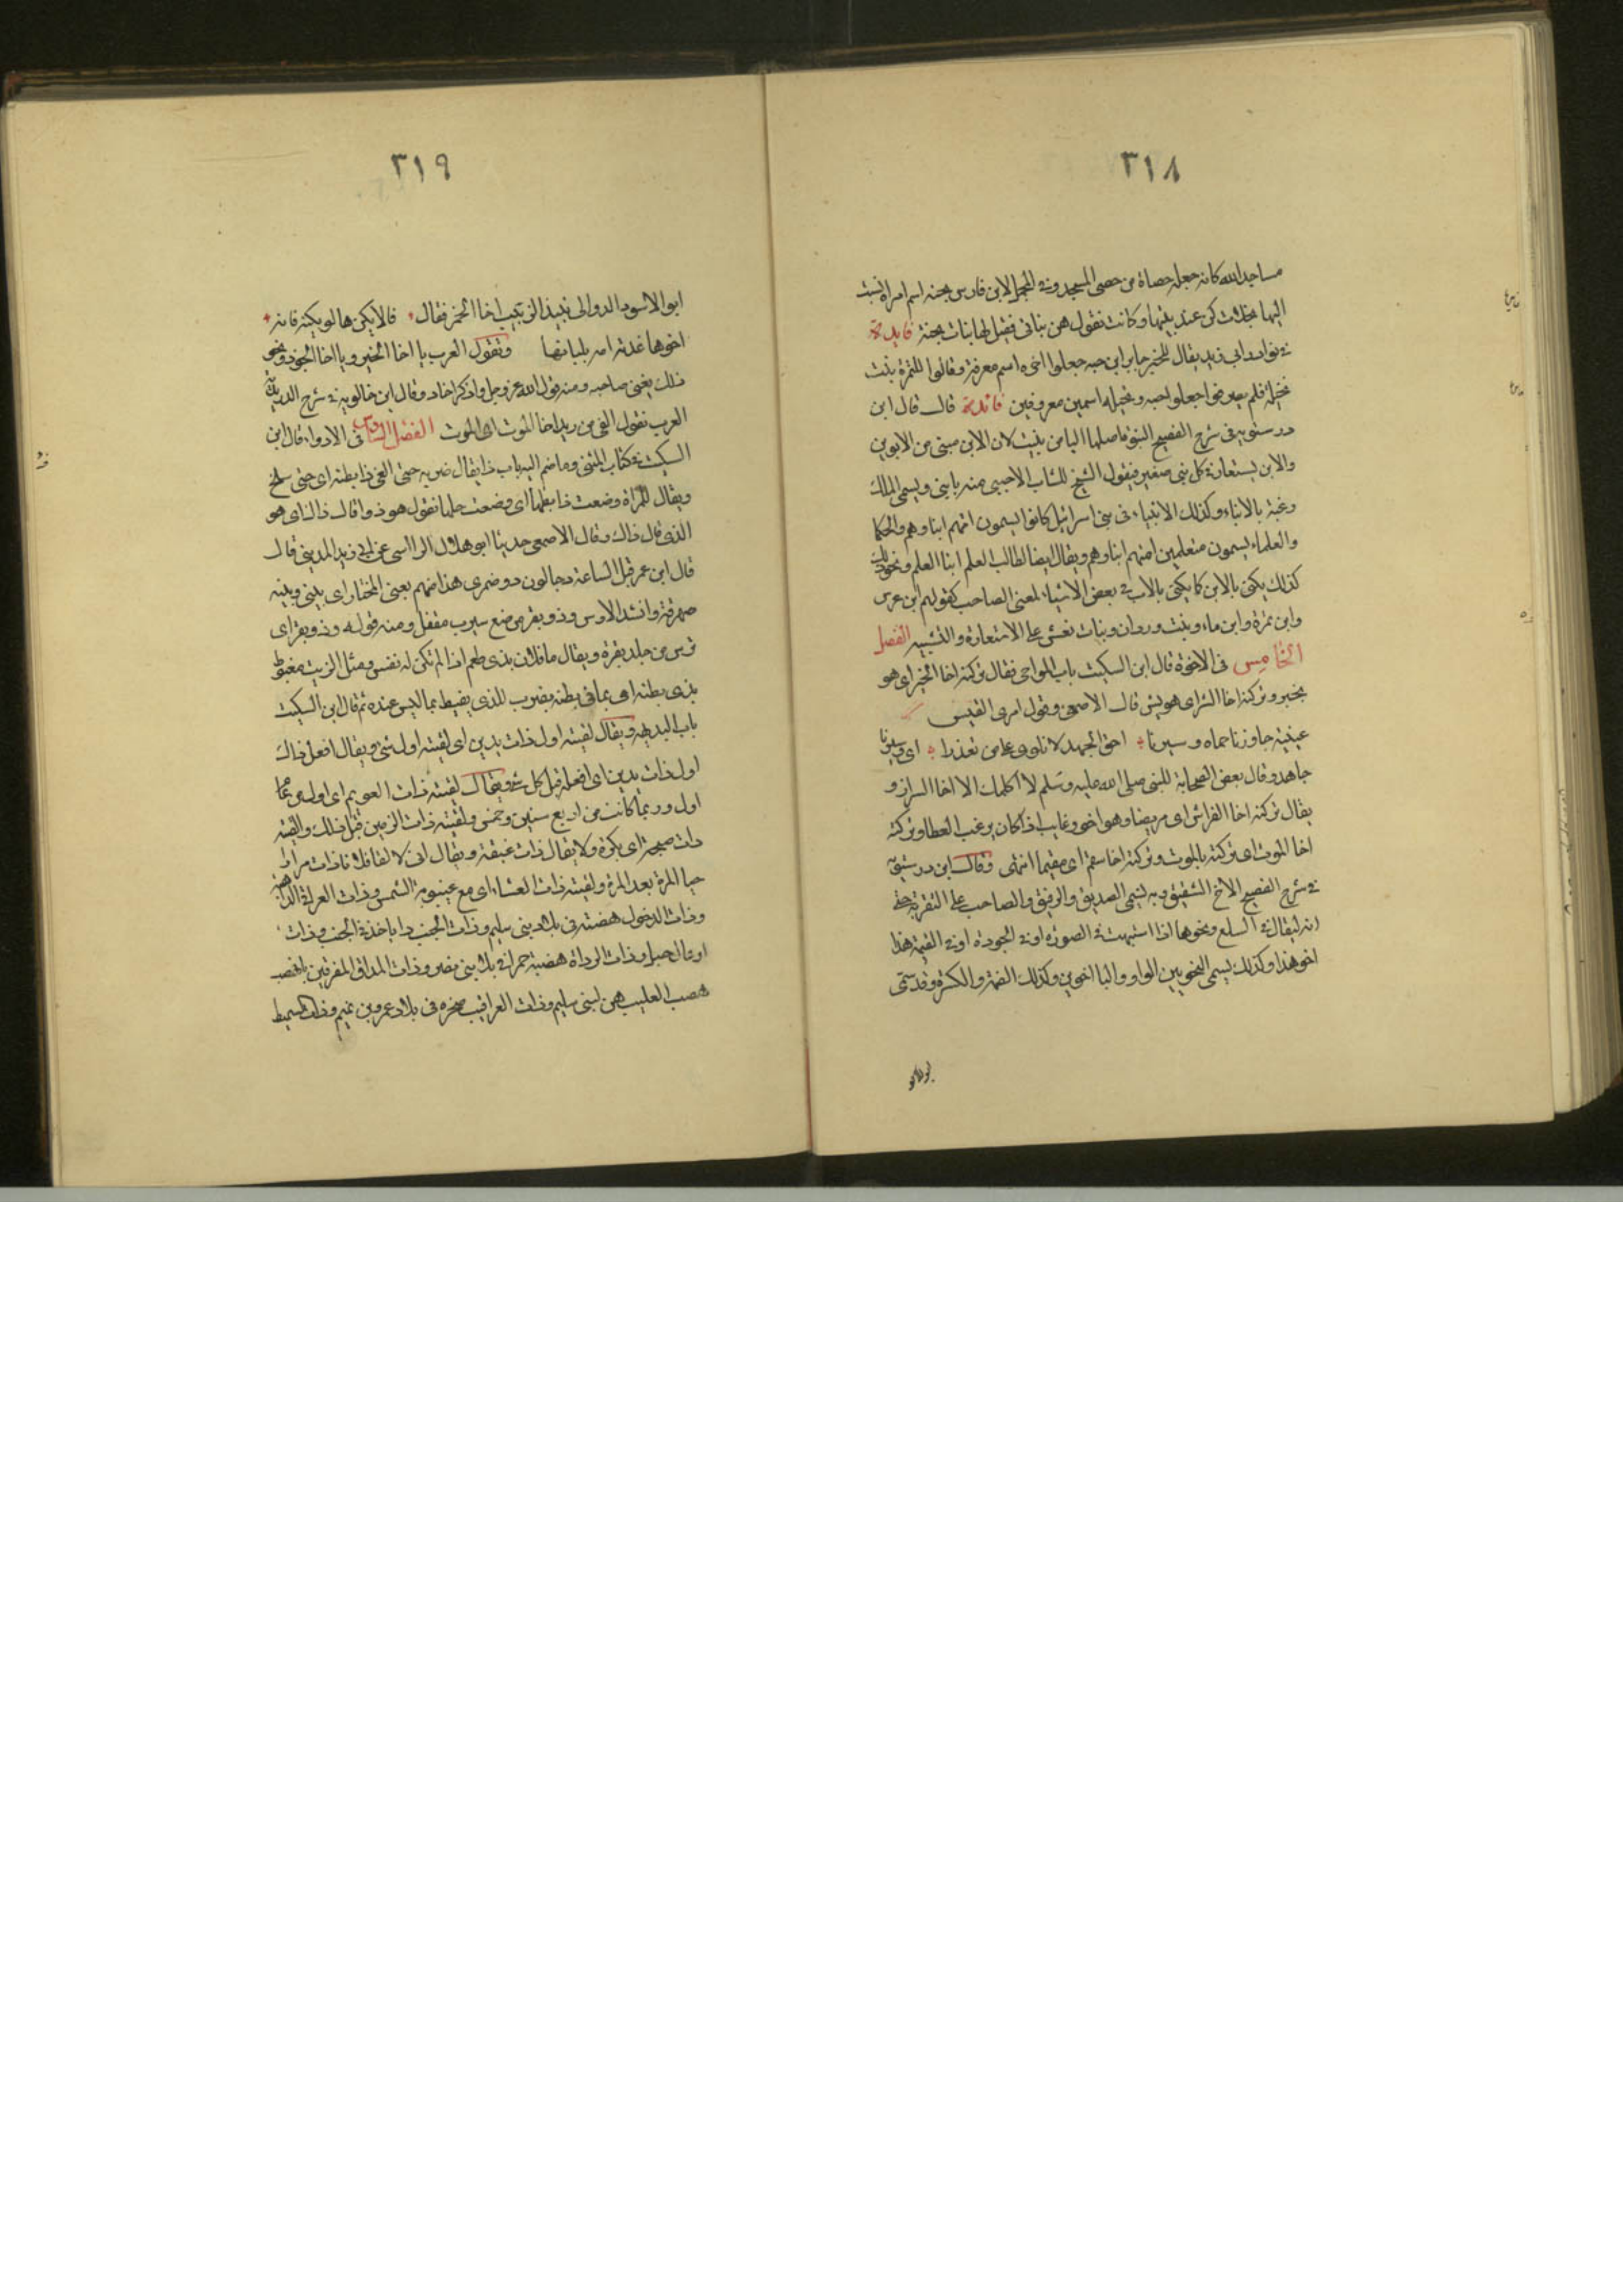 ٣١٨
مساجد الله كانه جعله حصاة من حصى المسجد وفي المجمل لابن فارس بجنة اسم امراة نسبت
اليها نخلات كن عند بيتها وكانت تقول هن بناتي فقيل لها بنات بجنة فايدة
في نوادر ابي زيد يقال للخبز جابر ابن حبه جعلوا اخره اسم معرفة وقالوا للتمرة بنت
نخيلة فلم يصرفوا جعلوا حبه ونخيلة اسمين معروفين فائدة قال قال ابن
درستويه في شرح الفصيح البنوة اصلها اليا من بنيت لان الابن مبني من الابوين
والابن يستعار في كل شي صغير فيقول الشيخ للشاب الاجنبي منه يا بني ويسمي الملك
رعيته بالابناء وكذلك الانبياء في بني اسرائيل كانوا يسمون اممهم ابناوهم والحكما
والعلماء يسمون متعلمين منهم ابناوهم ويقال ايضا لطالب العلم ابنا العلم ونحو ذلك
كذلك يكنى بالابن كما يكنى بالاب في بعض الاشياء لمعنى الصاحب كقولهم ابن عرس
وابن تمرة وابن ماء وبنت وردان وبنات نعش على الاستعارة والتشبيه الفصل
الخامس في الاخوة قال ابن السكيت باب المواخي فقال تركته اخا الخير اي هو
بخير وتركته اخا الشر اي هو بشر قال الاصمعي وقول امرى القيس
عشية جاوزنا حماه وسيرنا اخو الجهد لا نلوى على من تعذرا اي وسيرنا
جاهد وقال بعض الصحابة للنبي صلى الله عليه وسلم لا اكلمك الا اخا السرار و
يقال تركته اخا الفراش اي مريضا وهو اخو رغايب اذا كان يرغب العطا وتركته
اخا الموت اي تركته بالموت وتركته اخا سقم اي سقيما انتهى وقال ابن درستويه
في شرح الفصيح الاخ الشقيق وبه يسمى الصديق والرفيق والصاحب على التقريب حتى
انه ليقال في السلع ونحوها اذا اشتبهت في الصورة او في الجودة او في القيمة هذا
اخو هذا وكذلك يسمي النحويين الواو واليا اخوين وكذلك الضمة والكسرة وقد سمى
٣١٩
ابو الاسود الدوالى نبيذ الزبيب اخا الخمر فقال فالا يكن ها او يكنه فانه
اخوها غذته امه بلبانها وتقول العرب يا اخا الخير ويا اخا الجود ونحو
ذلك يعني صاحبه ومنه قول الله عز وجل واذكر اخا عاد وقال ابن خالويه في شرح الدريدية
العرب تقول الفي من ردي اخا الموت اي الموت الفصل السادس في الادواء قال ابن
السكيت في كتاب المثنى وما ضم اليه باب ذا يقال ضربه حتى القى ذا بطنه اي حتى سلح
ويقال للمراة وضعت ذا بطنها اي وضعت حملها تقول هو ذو قال ذاك اي هو
الذي قال ذاك وقال الاصمعي حدثنا ابو هلال الراسبي عن ابي زيد المديني قال
قال ابن عمر قبل الساعة دجالون ذو ضمرى هذا منهم يعني المختار اي بيني وبينه
صهر وانشد الاوس وذو بقر من صنع يثرب مقفل ومنه قوله وذو بقر اي
ترس من جلد بقرة ويقال ما فلان بذي طعم اذا لم تكن له نفس ومثل الزيت مغبوط
بذي بطنه اي بما في بطنه يضرب للذي يغبط بما ليس عنده ثم قال ابن السكيت
باب البديهة ويقال لقيته اول ذات يدين اي لقيته اول شي ويقال افعل ذاك
اول ذات يدين اي افعله قبل كل شي ويقال لقيته ذات العويم اي اول من عام
اول وربما كانت من اربع سنين وخمس ولقيته ذات الزمين قبل ذلك ولقيته
ذات صبحة اي بكرة ولا يقال ذات غبقة ويقال اني لا لقا فلانا ذات مرار
حيا المرة بعد المرة ولقيته ذات العشاء اي مع غيبوبة الشمس وذات العراقي الداهية
وذات الدخول هضبة في بلاد بني سليم وذات الجنب دا ياخذ في الجنب وذات
اوعال جبل وذات الرداة هضبة حمرا في بلاد بني نصر وذات المداق المفرقين
هضب القليب هن لبني سليم وذات العراقيب صخره في بلاد عمرو بن تميم وذات السميط